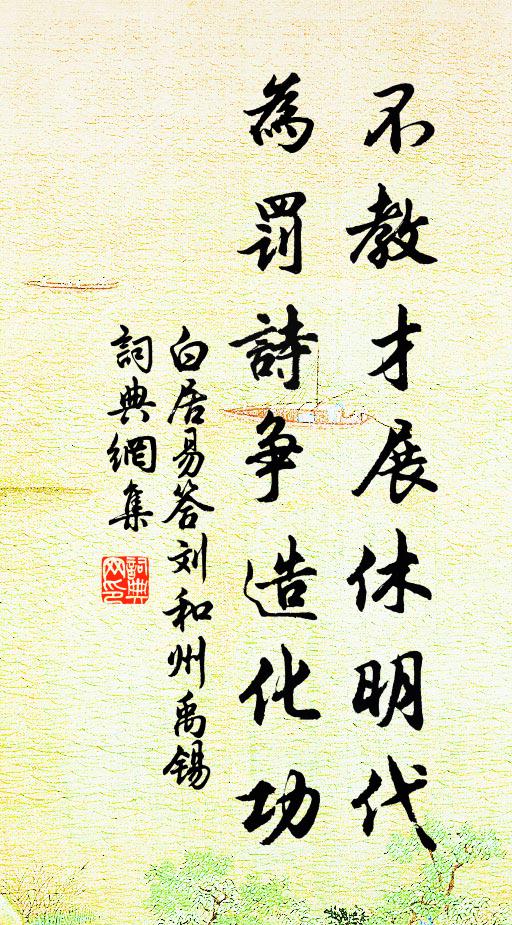 不教才展休明代
為罰詩争造化功
白居易答刘和州禹锡
詞典網集
詞典網印